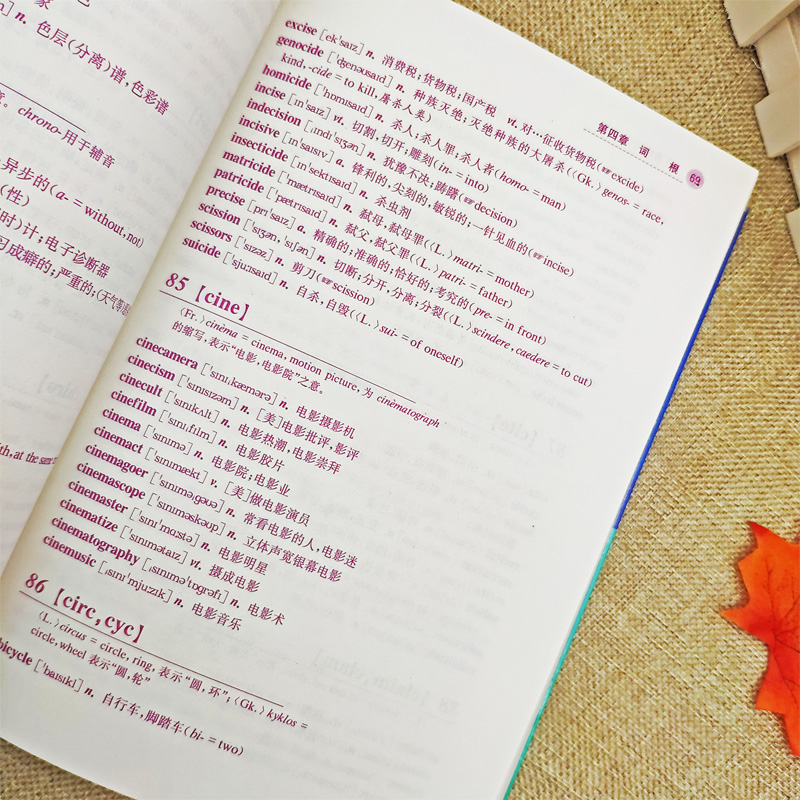 色层(分离)谱,色彩谱
chrono-用于辅音
异步的(a- = without, not)
(性)
时)计;电子诊断器
习成癖的;严重的;(天气等
第四章 词 根 69
excise [ek'saɪz] n. 消费税;货物税;国产税 vt. 对…征收货物税(☞excide)
genocide ['dʒenəʊsaɪd] n. 种族灭绝;灭绝种族的大屠杀(〈Gk.〉genos- = race,
kind, -cide = to kill, 屠杀人类)
homicide ['hɒmɪsaɪd] n. 杀人;杀人罪;杀人者(homo- = man)
incise [ɪn'saɪz] vt. 切割,切开;雕刻(in- = into)
indecision [ˌɪndɪ'sɪʒən] n. 犹豫不决;踌躇(☞decision)
incisive [ɪn'saɪsɪv] a. 锋利的,尖刻的,敏锐的;一针见血的(☞incise)
insecticide [ɪn'sektɪsaɪd] n. 杀虫剂
matricide ['mætrɪsaɪd] n. 弑母,弑母罪(〈L.〉matri- = mother)
patricide ['pætrɪsaɪd] n. 弑父,弑父罪(〈L.〉patri- = father)
precise [prɪ'saɪz] a. 精确的;准确的;恰好的;考究的(pre- = in front)
scission ['sɪʒən, sɪʃən] n. 切断;分开,分离;分裂(〈L.〉scindere, caedere = to cut)
scissors ['sɪzəz] n. 剪刀(☞scission)
suicide ['sjuːɪsaɪd] n. 自杀,自毁(〈L.〉sui- = of oneself)
85 【cine】
〈Fr.〉cinèma = cinema, motion picture, 为 cinèmatograph
的缩写,表示“电影,电影院”之意。
cinecamera ['sɪnɪˌkæmərə] n. 电影摄影机
cinecism ['sɪnɪsɪzəm] n. [美]电影批评,影评
cinecult ['sɪnɪkʌlt] n. 电影热潮,电影崇拜
cinefilm ['sɪnɪˌfɪlm] n. 电影胶片
cinema ['sɪnɪmə] n. 电影院;电影业
cinemact ['sɪnɪmækt] v. [美]做电影演员
cinemagoer ['sɪnɪməˌgəʊə] n. 常看电影的人,电影迷
cinemascope ['sɪnɪməskəʊp] n. 立体声宽银幕电影
cinemaster ['sɪnɪ'mɑːstə] n. 电影明星
cinematize ['sɪnɪmətaɪz] vt. 摄成电影
cinematography [ˌsɪnɪmə'tɒgrəfɪ] n. 电影术
cinemusic [ˌsɪnɪ'mjuːzɪk] n. 电影音乐
86 【circ, cyc】
〈L.〉circus = circle, ring, 表示“圆,环”;〈Gk.〉kyklos =
circle, wheel 表示“圆,轮”
bicycle ['baɪsɪkl] n. 自行车,脚踏车(bi- = two)